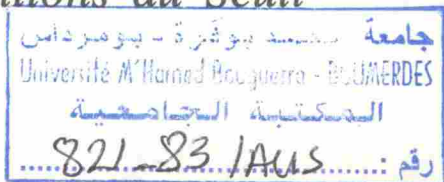 Éditions du Seuil
جامعة محمد بوقرة - بومرداس
Université M'Hamed Bouguerra - BOUMERDES
المكتبة الجامعية
رقم : 821_83 /AUS